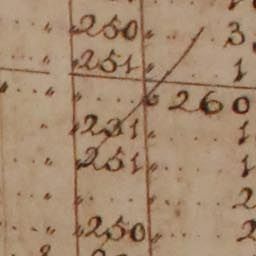 250 3
251 1
260
231 1
251 1
2
250 2